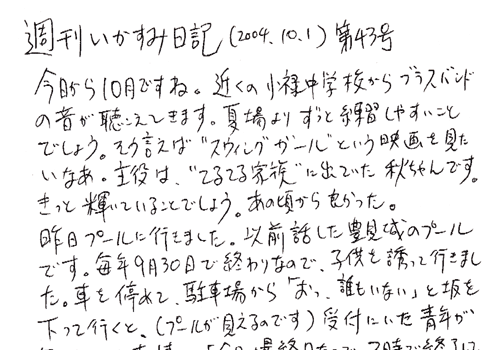 週刊いかすみ日記(2004.10.1)第43号
今日から10月ですね。近くの小禄中学校からブラスバンド
の音が聴こえてきます。夏場よりずっと練習しやすいこと
でしょう。そう言えば“スウィングガール”という映画を見た
いなあ。主役は、“てるてる家族”に出ていた秋ちゃんです。
きっと輝いていることでしょう。あの頃から良かった。
昨日プールに行きました。以前話した豊見城のプール
です。毎年9月30日で終わりなので、子供を誘って行きまし
た。車を停めて、駐車場から「おっ、誰もいない」と坂を
下って行くと、(プールが見えるのです)受付にいた青年が